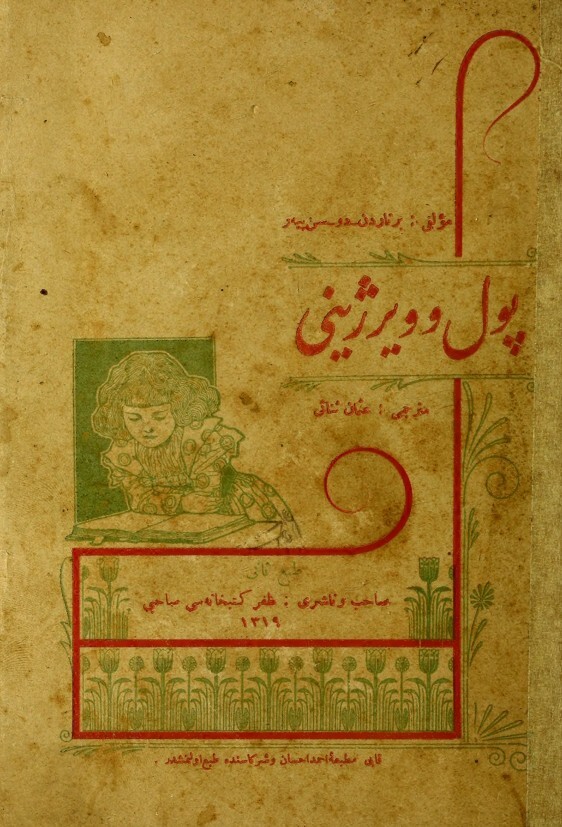 مؤلفی : برناردن دو سن پیەر
پول و ویرژینی
مترجمی : عثمان ثنائی
طبع ثانی
صاحب و ناشری : ظفر کتبخانه‌سی صاحبی
١٣١٩
قابی مطبعۀ احمد احسان و شرکاسنده طبع اولنمشدر